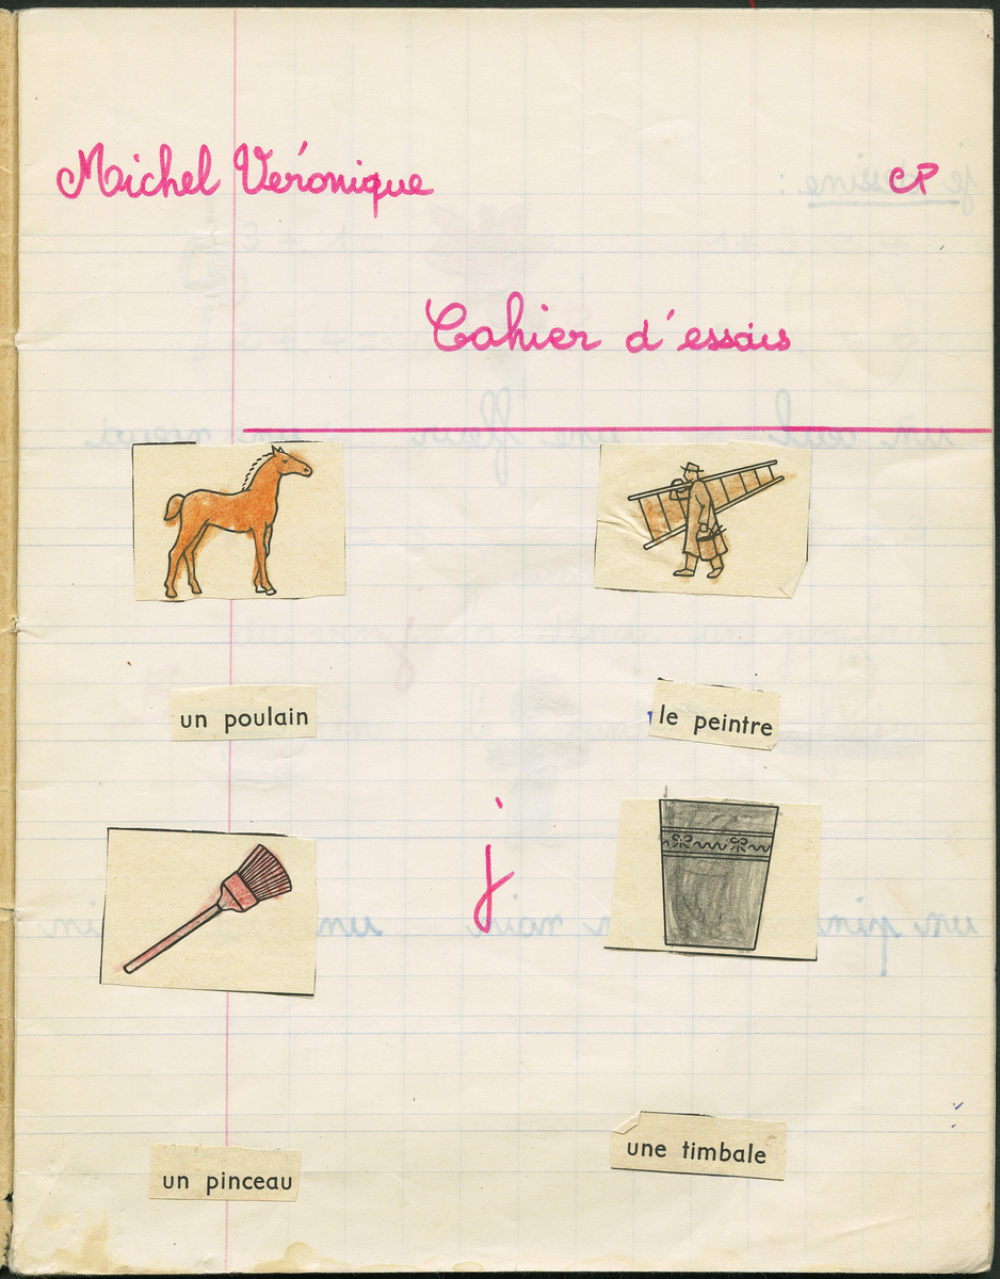 Michel Véronique CP
Cahier d'essais
un poulain le peintre
j
un pinceau une timbale